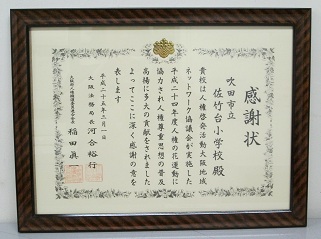 感謝状
吹田市立
佐竹台小学校 殿
貴校は人権啓発活動大阪地域
ネットワーク協議会が実施した
平成二十四年度人権の花運動に
協力され人権尊重思想の普及
高揚に多大の貢献をされました
よってここに深く感謝の意を
表します
平成二十五年三月一日
大阪法務局長 河合裕行
稲田眞一